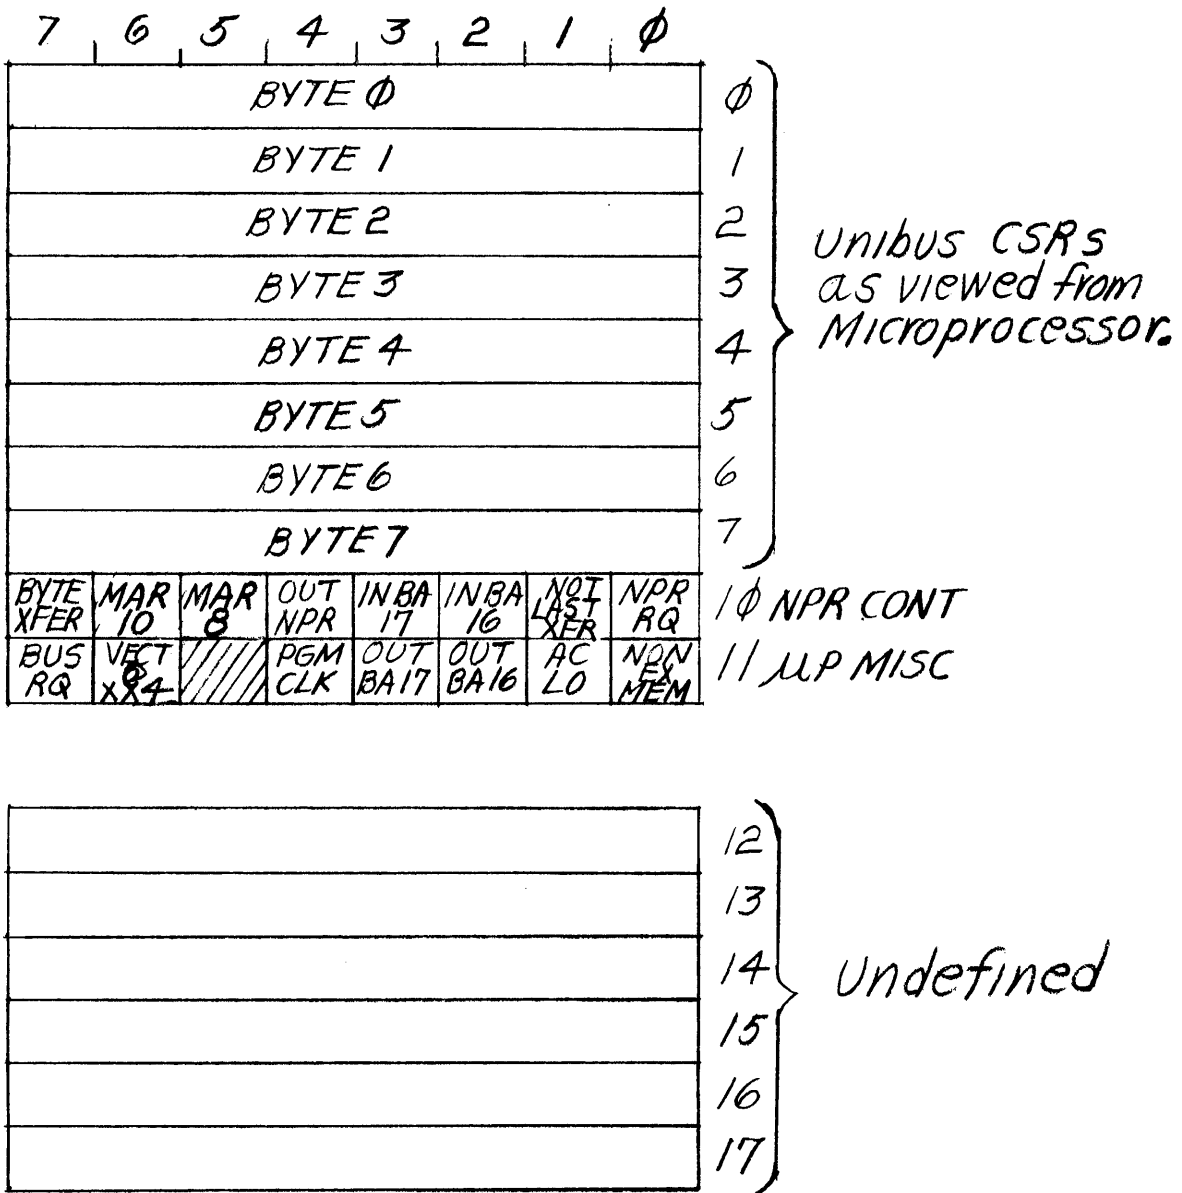 7 6 5 4 3 2 1 φ
BYTE φ φ
BYTE 1 1
BYTE 2 2
BYTE 3 3
BYTE 4 4
BYTE 5 5
BYTE 6 6
BYTE 7 7
Unibus CSRs
as viewed from
Microprocessor.
BYTE XFER MAR 10 MAR 8 OUT NPR IN BA 17 IN BA 16 NOT LAST XFER NPR RQ 1φ NPR CONT
BUS RQ VECT @ XX4 PGM CLK OUT BA17 OUT BA16 AC LO NON EX MEM 11 μP MISC
12
13
14
15
16
17
Undefined